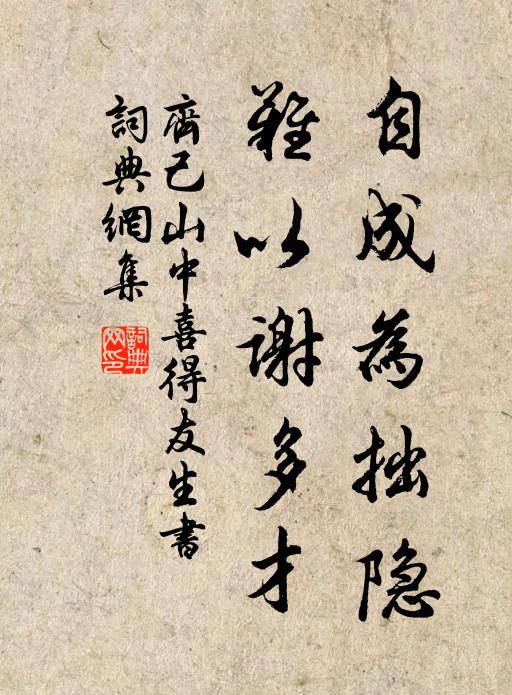 自成為拙隐
難以謝多才
齊己山中喜得友生書
詞典網集
詞典網印